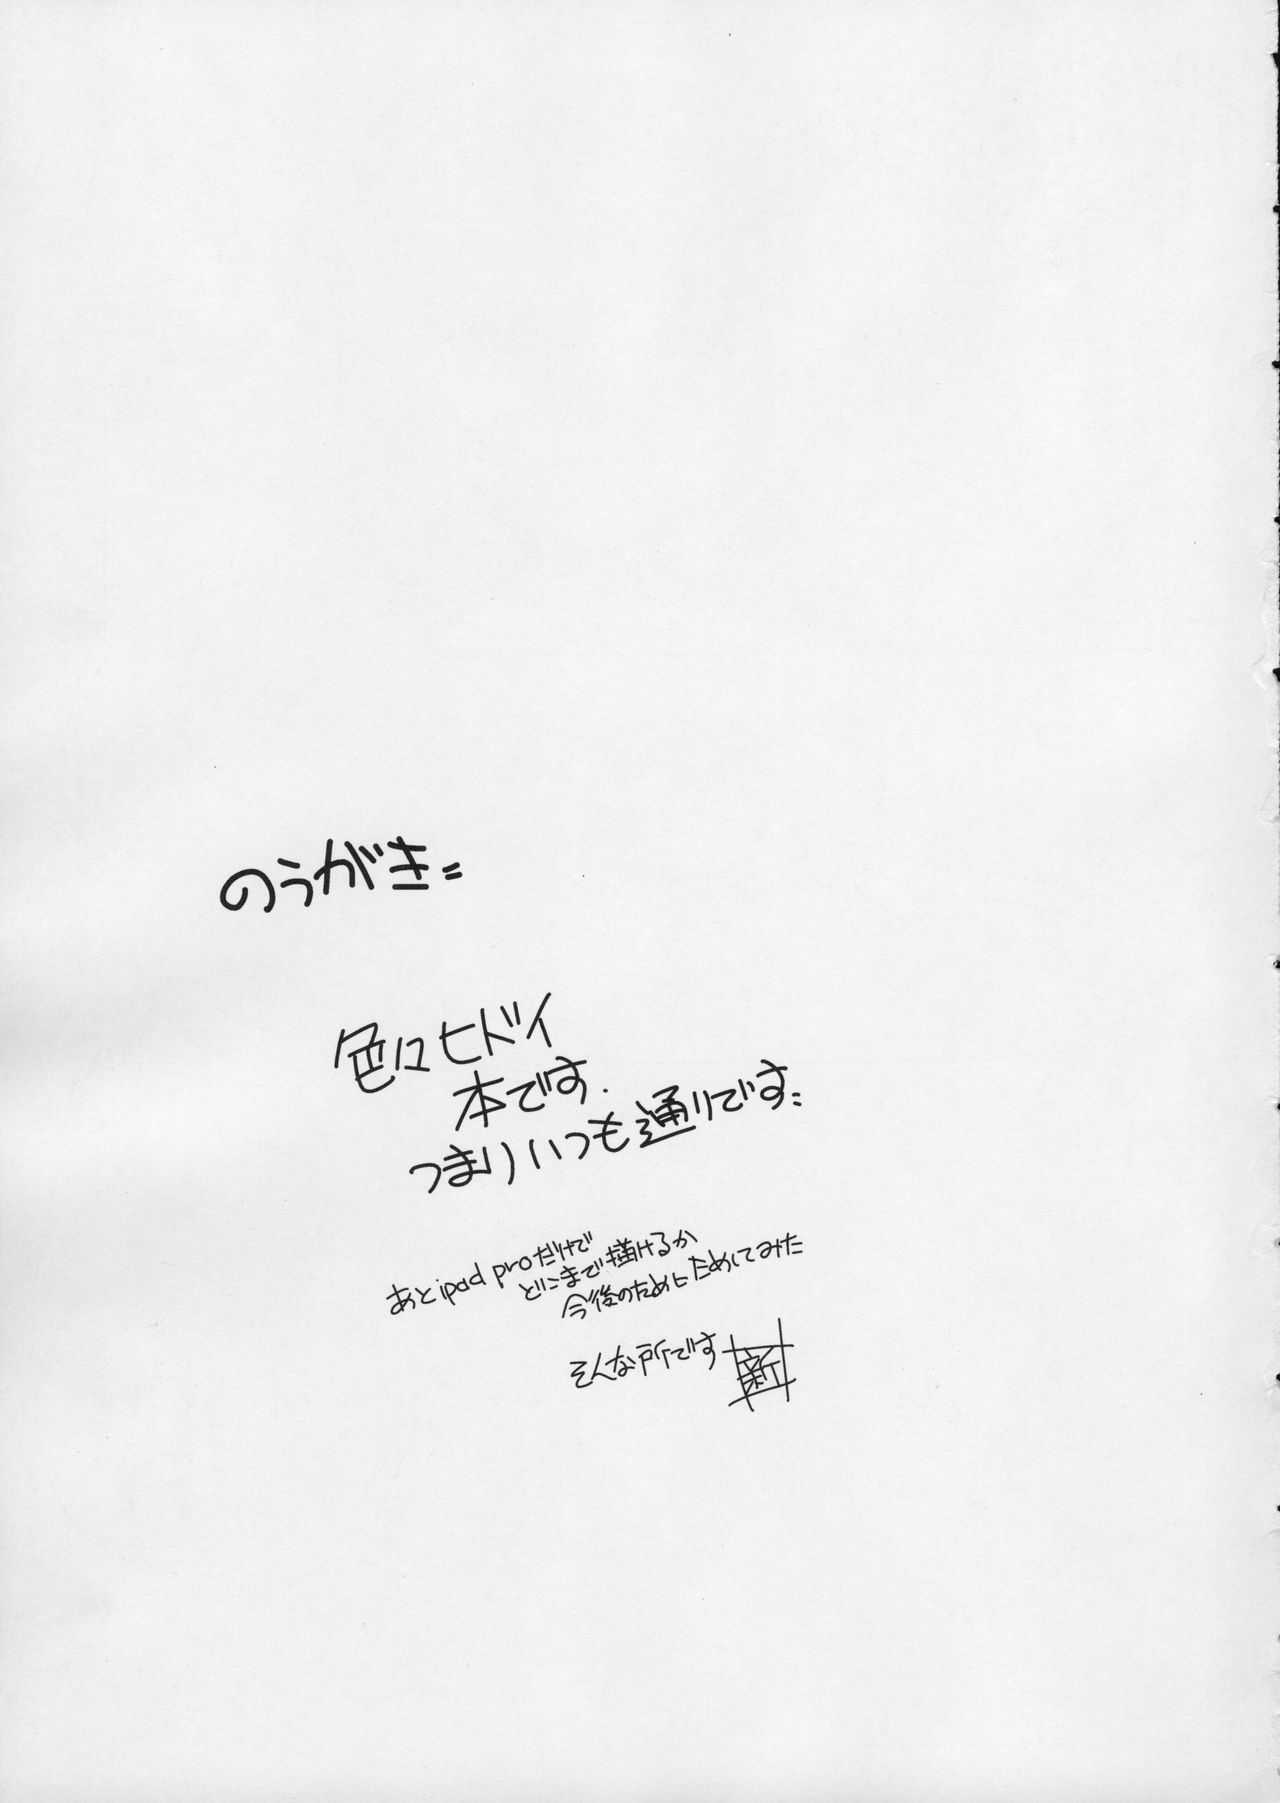 のうがき=
色々ヒドイ
本です.
つまりいつも通りです.
あとipad proだけで
どこまで描けるか
今後のためにためしてみた
そんな所です 新